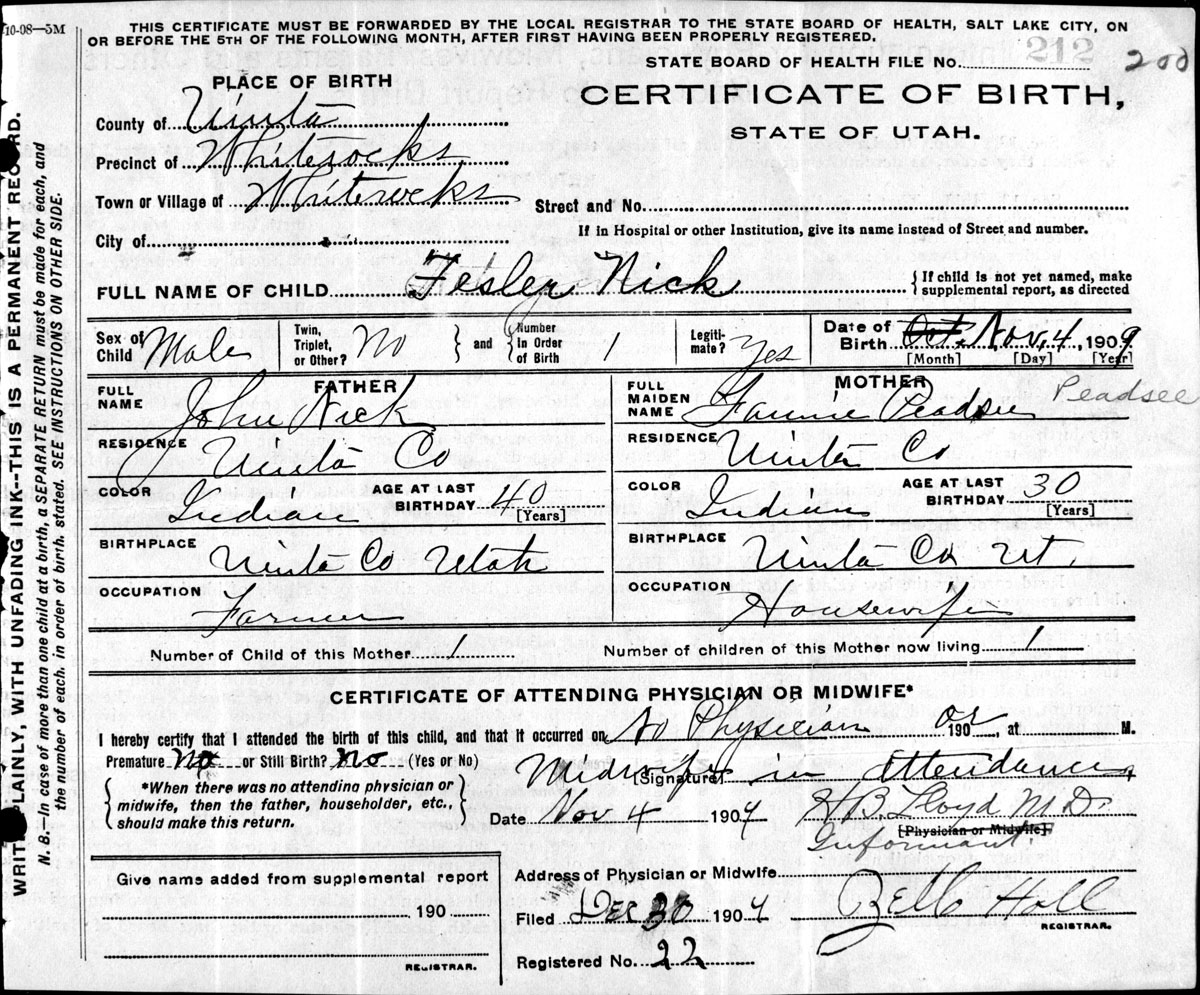 10-08—5M
THIS CERTIFICATE MUST BE FORWARDED BY THE LOCAL REGISTRAR TO THE STATE BOARD OF HEALTH, SALT LAKE CITY, ON
OR BEFORE THE 5TH OF THE FOLLOWING MONTH, AFTER FIRST HAVING BEEN PROPERLY REGISTERED.
STATE BOARD OF HEALTH FILE No. 212 200
PLACE OF BIRTH
CERTIFICATE OF BIRTH,
STATE OF UTAH.
County of Uinta
Precinct of Whiterocks
Town or Village of Whiterocks
Street and No.
City of
If in Hospital or other Institution, give its name instead of Street and number.
FULL NAME OF CHILD Fesler Nick
{ If child is not yet named, make
supplemental report, as directed
Sex of Child Male
Twin, Triplet, or Other? No } and { Number In Order of Birth 1
Legitimate? Yes
Date of Birth Oct. Nov. 4 1909
[Month] [Day] [Year]
FATHER
FULL NAME John Nick
RESIDENCE Uinta Co
COLOR Indian
AGE AT LAST BIRTHDAY 40 [Years]
BIRTHPLACE Uinta Co Utah
OCCUPATION Farmer
MOTHER
FULL MAIDEN NAME Fannie Peadsee Peadsee
RESIDENCE Uinta Co
COLOR Indian
AGE AT LAST BIRTHDAY 30 [Years]
BIRTHPLACE Uinta Co Ut.
OCCUPATION Housewife
Number of Child of this Mother 1
Number of children of this Mother now living 1
CERTIFICATE OF ATTENDING PHYSICIAN OR MIDWIFE*
I hereby certify that I attended the birth of this child, and that it occurred on No Physician or 190 , at M.
Premature No or Still Birth? No (Yes or No)
Midwife in attendance
Signature
{ *When there was no attending physician or
midwife, then the father, householder, etc.,
should make this return. }
Date Nov 4 1909
H B Lloyd M.D.
[Physician or Midwife]
Informant.
Give name added from supplemental report
190
REGISTRAR.
Address of Physician or Midwife
Filed Dec 30 1909
Hall
REGISTRAR.
Registered No. 22
WRITE PLAINLY, WITH UNFADING INK--THIS IS A PERMANENT RECORD.
N. B.—In case of more than one child at a birth, a SEPARATE RETURN must be made for each, and
the number of each, in order of birth, stated. SEE INSTRUCTIONS ON OTHER SIDE.